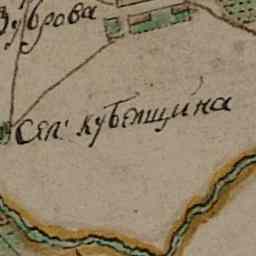 Зуброва
Сел: кубенщина